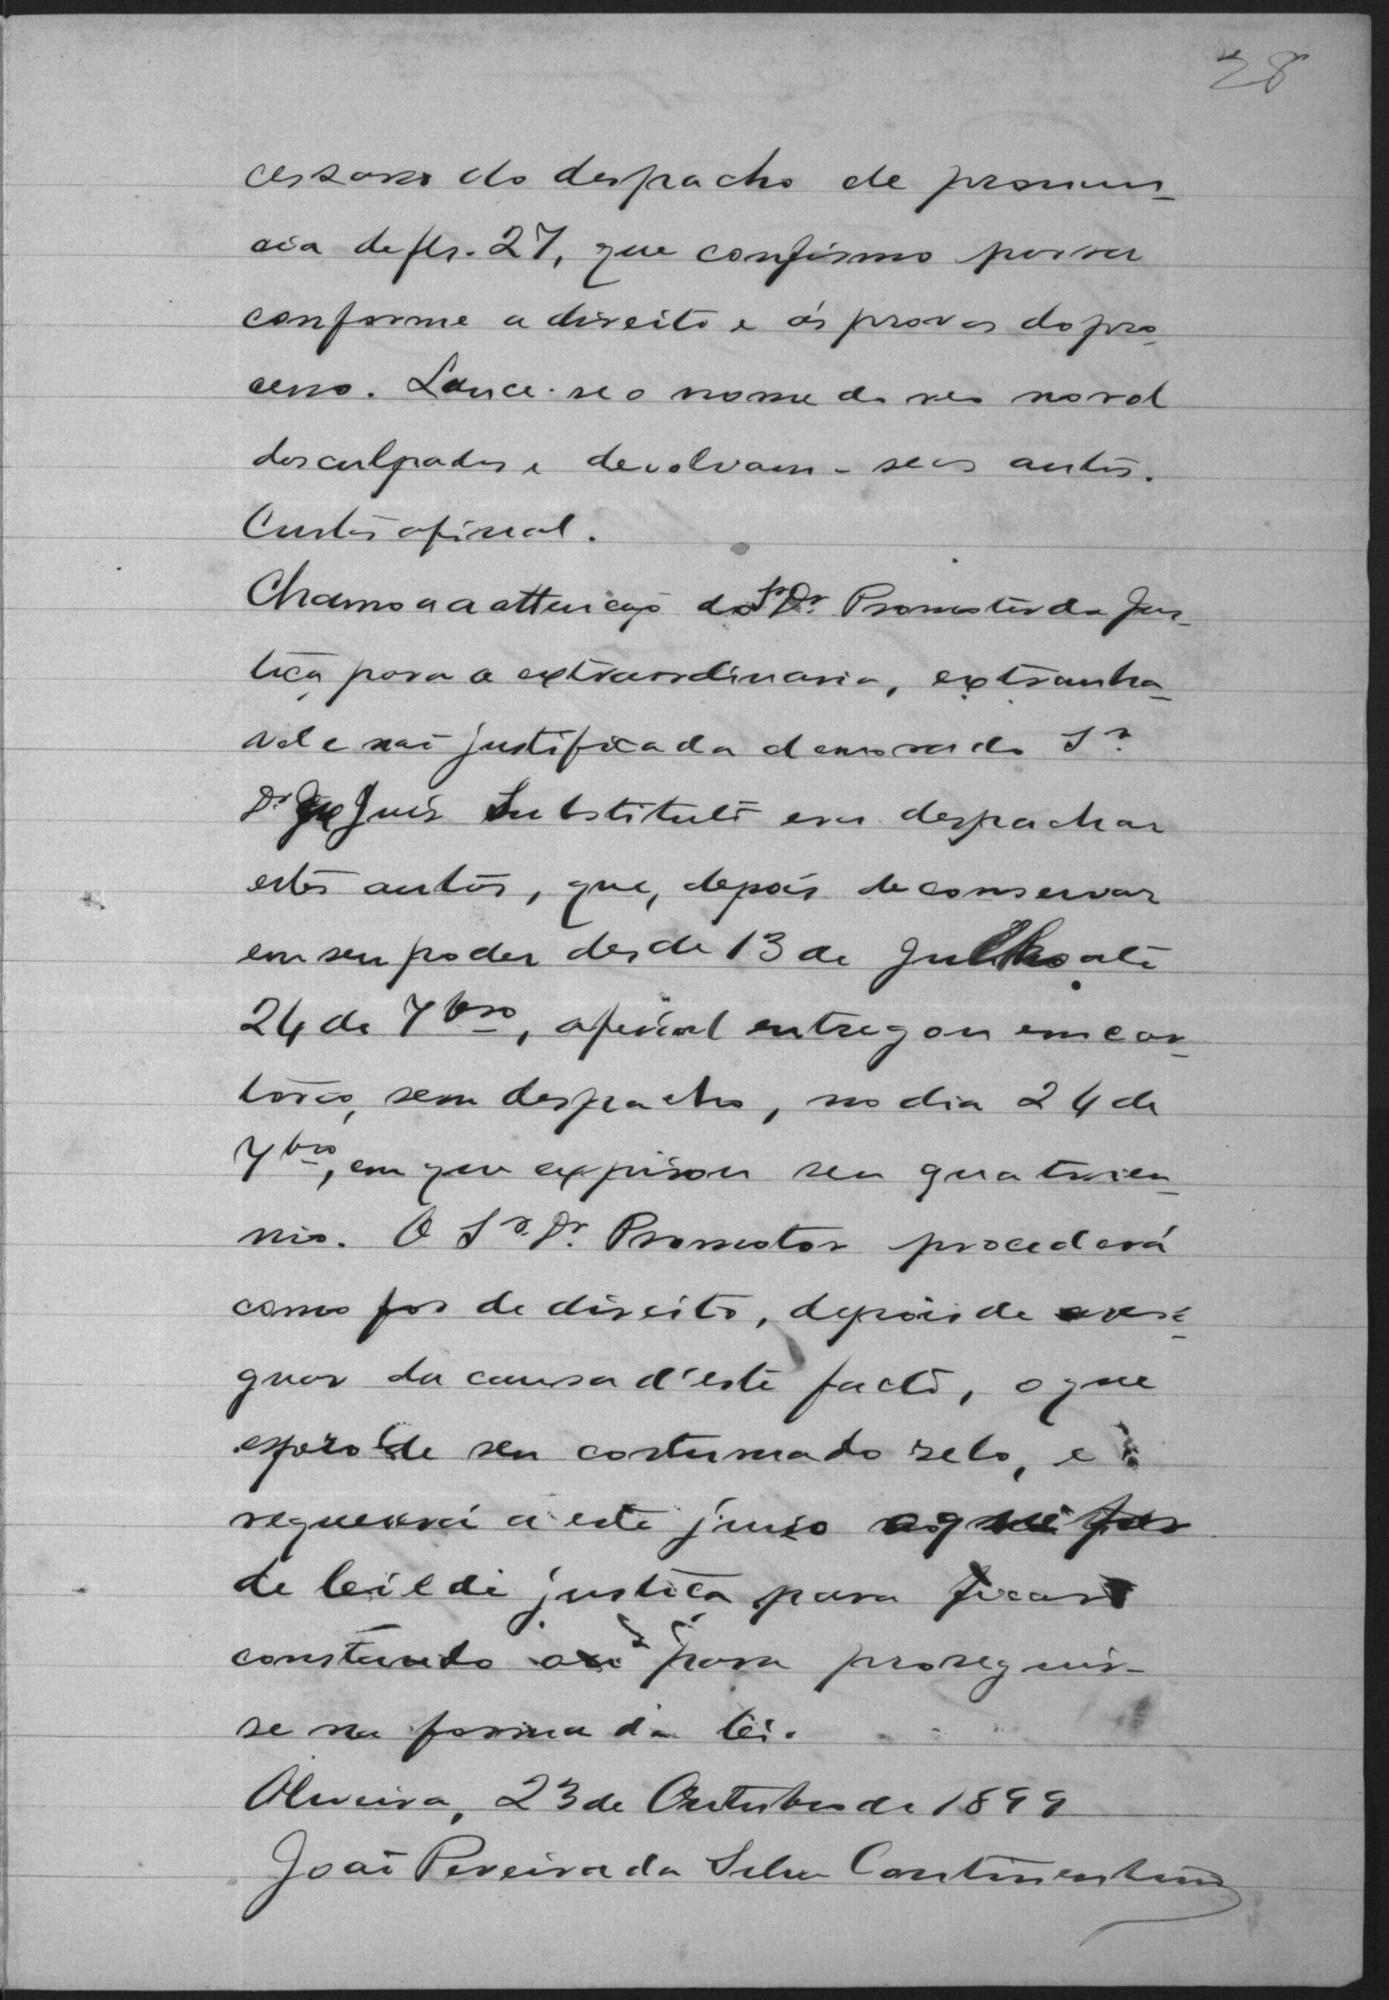 28
cessario do despacho de pronun-
cia de fls. 27, que confirmo por ser
conforme a direito e ás provas do pro-
cesso. Lance-se o nome do reo no rol
dos culpados e devolvam-se os autos.
Custas afinal.
Chamo a a attenção do Sr Dr. Promotor da Jus-
tiça para a extraordinaria, extranha-
vel e não justificada demora do Sr.
Dr. Juiz Substituto em despachar
estes autos, que, depois de conservar
em seu poder desde 13 de Julho até
24 de 7bro, afinal entregou em car-
torio, sem despacho, no dia 24 de
7bro, em que expirou seu quatrien-
nio. O Sr. Dr. Promotor procederá
como for de direito, depois de averi-
guar da causa d'este facto, o que
espero de seu costumado zelo, e
requererá a este juizo o que for
de lei e de justiça para ficar
constando para proseguir-
se na forma da lei.
Oliveira, 23 de Outubro de 1899
João Pereira da Silva Continentino